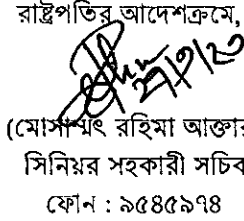 রাষ্ট্রপতির আদেশক্রমে,
(মোসাম্মৎ রহিমা আক্তার
সিনিয়র সহকারী সচিব
ফোন : ৯৫৪৫৯৭৪